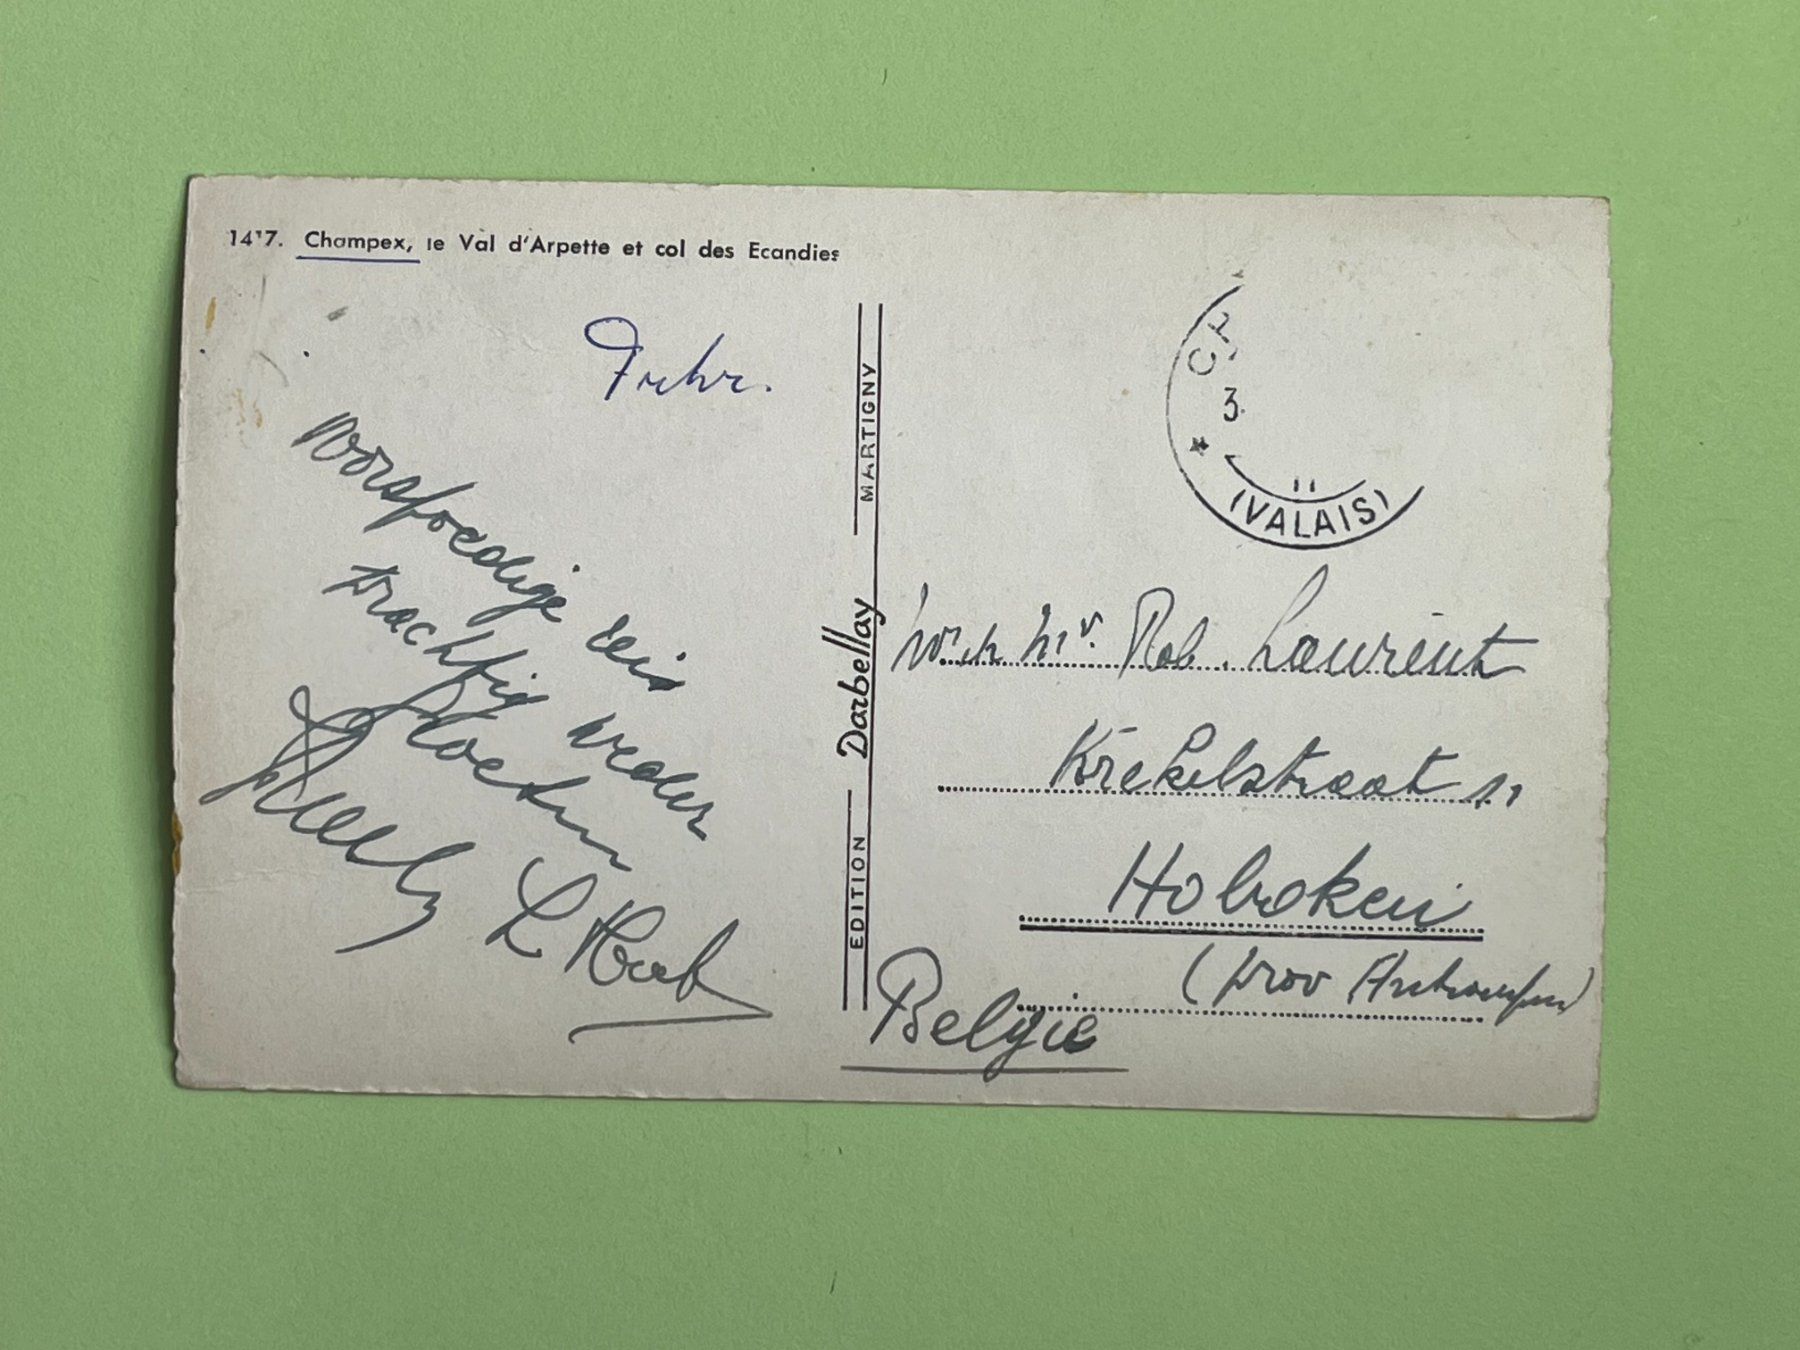 1417. Champex, le Val d'Arpette et col des Ecandies
voorspoedige reis
prachtig weder
Groeten
L
EDITION Darbellay MARTIGNY
CH
3.
* (VALAIS)
Mr. Rob. Laurent
Krekelstraat 11
Hoboken
(prov Antwerpen)
Belgie